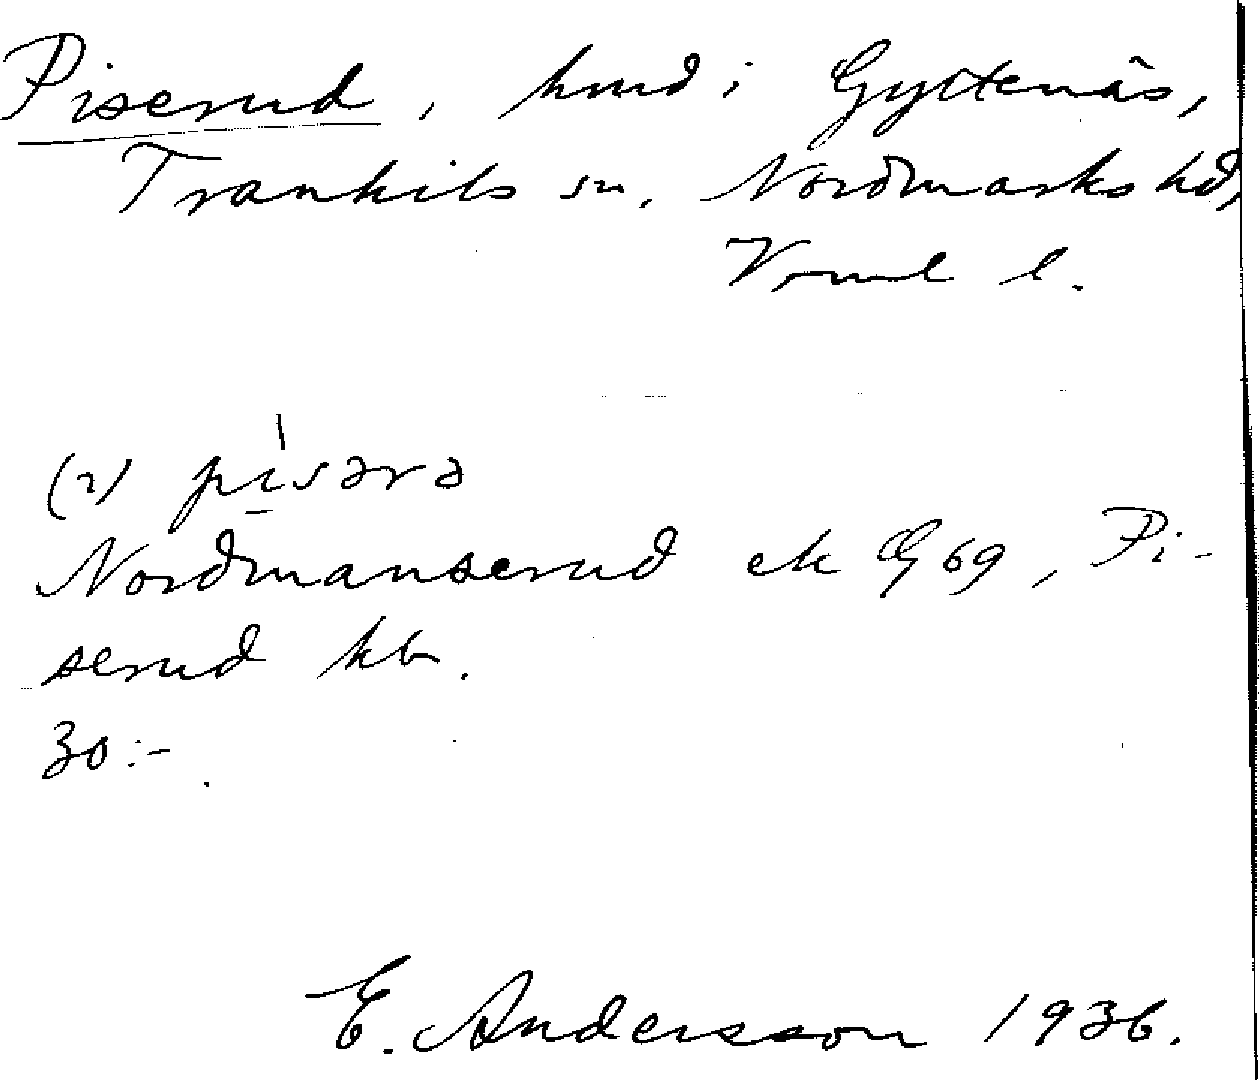 Piserud, hmd i Gyltenäs,
Trankils sn, Nordmarks hd,
Vrml l.
(2) pisərə
Nordmanserud ek G69, Pi-
serud kb.
30:-
E. Andersson 1936.